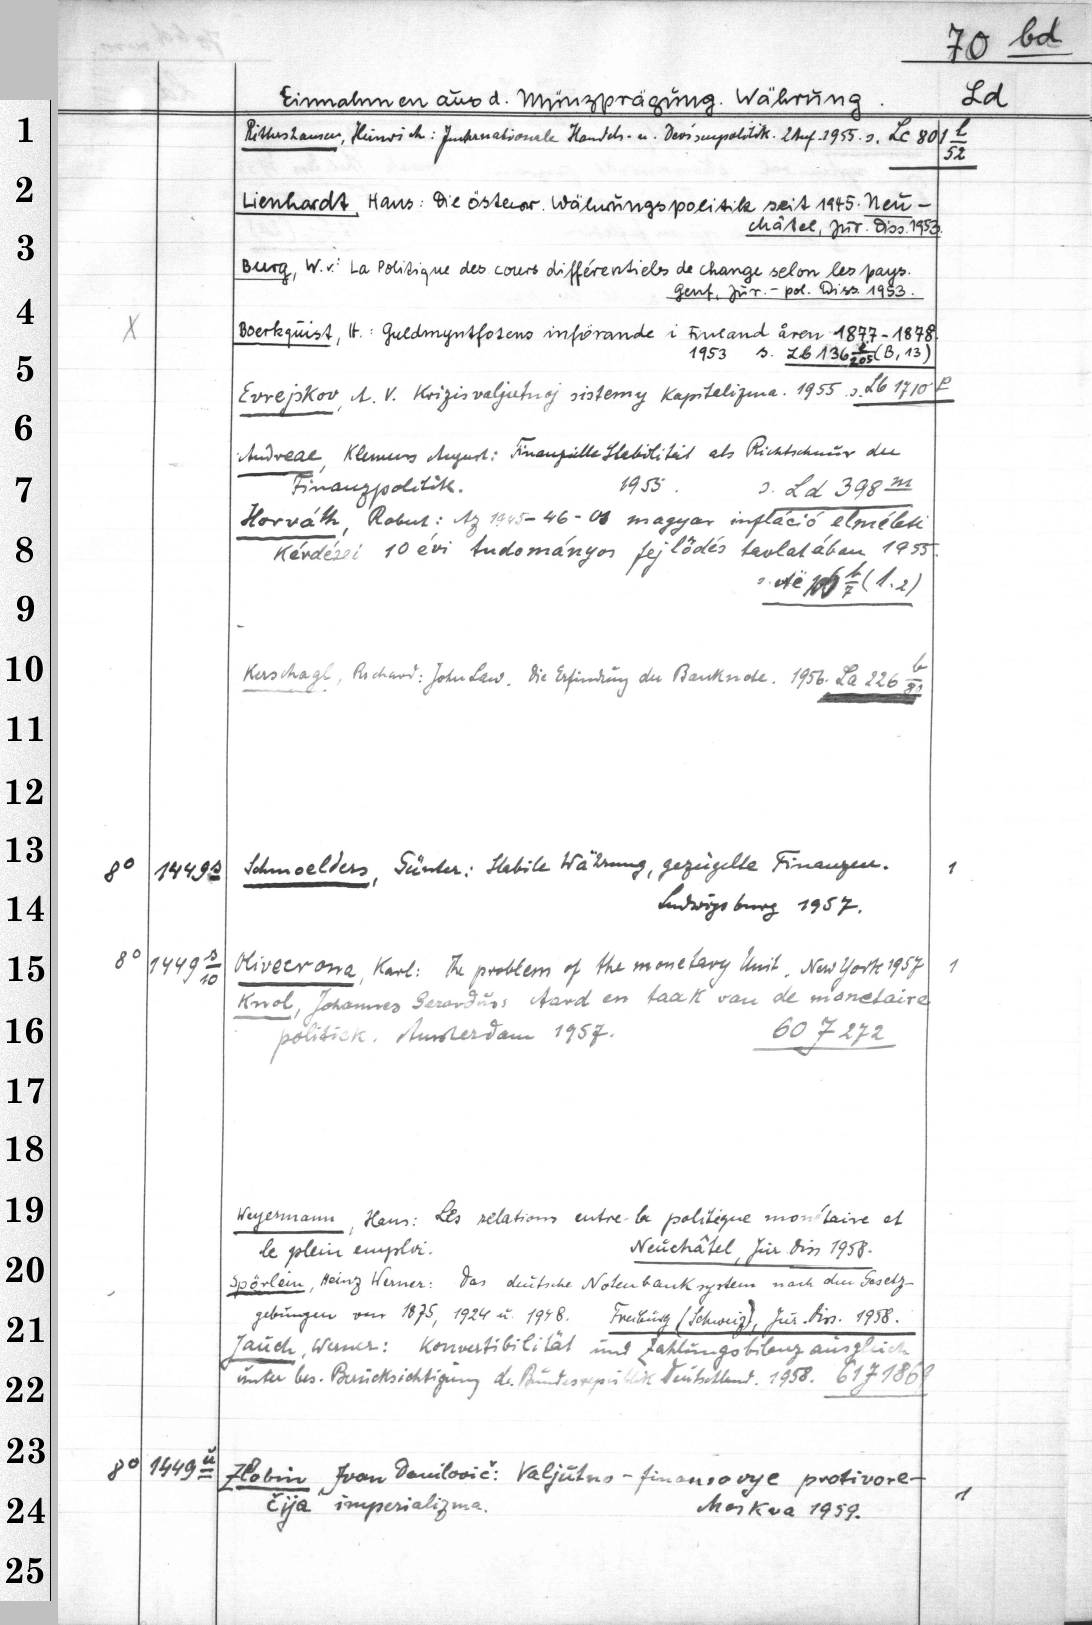 70 bd
Einnahmen aus d. Münzprägung. Währung. Ld
1
Rittershausen, Heinrich: Internationale Handels- u. Devisenpolitik. 2. Auf. 1955. s. Lc 801 l/52
2
Lienhardt, Hans: Die österr. Währungspolitik seit 1945. Neu-
3
châtel, Jur. Diss. 1953.
Burg, W. v.: La Politique des cours différentiels de change selon les pays.
4
Genf, Jur.-pol. Diss. 1953.
X Boerkquist, H.: Guldmyntfotens införande i Finland åren 1877-1878.
5
1953 s. Lb 136 e/205 (B, 13)
Evrejskov, A. V. Krizis valjutnoj sistemy Kapitalizma. 1955. s. Lb 1710 p
6
Andreae, Klemens August: Finanzielle Stabilität als Richtschnur der
7
Finanzpolitik. 1955. s. Ld 398 m
Horváth, Robert: Az 1945-46-os magyar infláció elméleti
8
Kérdései 10 évi tudományos fejlödés tavlatában 1955.
s. (1.2)
9
10
Kerschagl, Richard: John Law. Die Erfindung der Banknote. 1956. La 226
11
12
13
8° 1449 s Schmoelders, Günter: Stabile Währung, gezügelte Finanzen. 1
14
Ludwigsburg 1957.
15
8° 1449 s/10 Olivecrona, Karl: The problem of the monetary Unit. New York 1957 1
Knol, Johannes Gerardus: Aard en taak van de monetaire
16
politiek. Amsterdam 1957. 60 7 272
17
18
19
Weyermann, Hans: Les relations entre la politique monétaire et
le plein emploi. Neuchâtel, Jur. Diss 1958.
20
Spörlein, Heinz Werner: Das deutsche Notenbanksystem nach den Gesetz-
gebungen von 1875, 1924 u. 1948. Freiburg (Schweiz), Jur. Diss. 1958.
21
Jauch, Werner: Konvertibilität und Zahlungsbilanzausgleich
22
unter bes. Berücksichtigung d. Bundesrepublik Deutschland. 1958. 61 7 1869
23
8° 1449 u Zlobin, Ivan Danilovič: Valjutno-finansovye protivore-
24
čija imperializma. Moskva 1959. 1
25